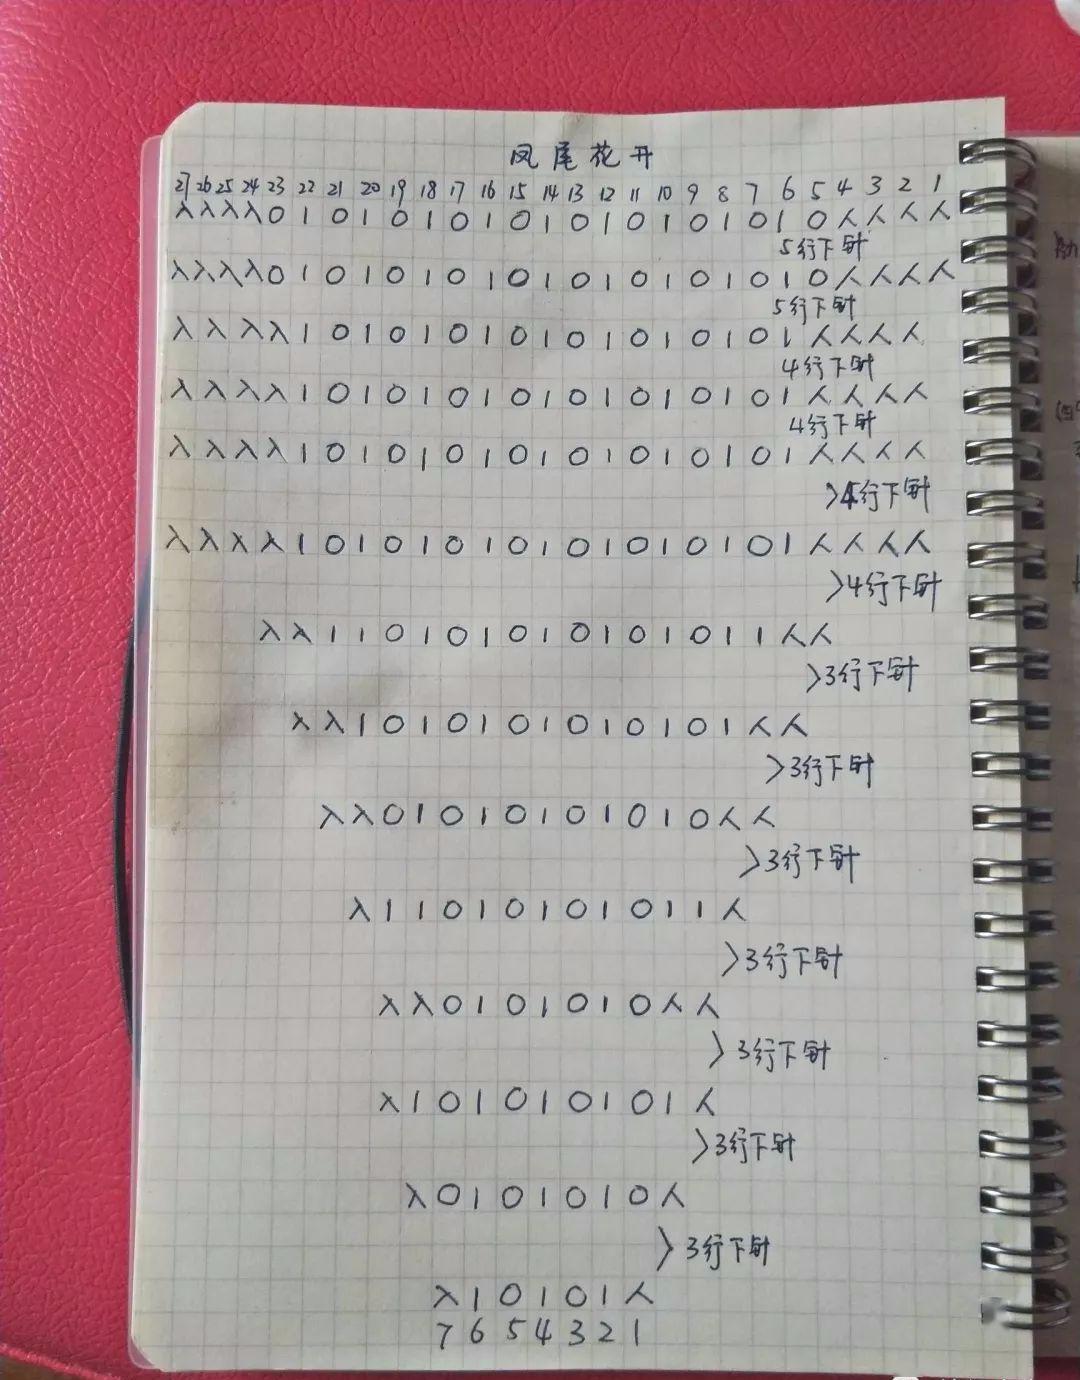 凤尾花开
27 26 25 24 23 22 21 20 19 18 17 16 15 14 13 12 11 10 9 8 7 6 5 4 3 2 1
λ λ λ λ 0 1 0 1 0 1 0 1 0 1 0 1 0 1 0 1 0 1 0 人 人 人 人
5行下针
λ λ λ λ 0 1 0 1 0 1 0 1 0 1 0 1 0 1 0 1 0 1 0 人 人 人 人
5行下针
λ λ λ λ 1 0 1 0 1 0 1 0 1 0 1 0 1 0 1 0 1 人 人 人 人
4行下针
λ λ λ λ 1 0 1 0 1 0 1 0 1 0 1 0 1 0 1 0 1 人 人 人 人
4行下针
λ λ λ λ 1 0 1 0 1 0 1 0 1 0 1 0 1 0 1 0 1 人 人 人 人
>4行下针
λ λ λ λ 1 0 1 0 1 0 1 0 1 0 1 0 1 0 1 0 1 人 人 人 人
>4行下针
λ λ 1 1 0 1 0 1 0 1 0 1 0 1 0 1 1 人 人
>3行下针
λ λ 1 0 1 0 1 0 1 0 1 0 1 0 1 人 人
>3行下针
λ λ 0 1 0 1 0 1 0 1 0 1 0 人 人
>3行下针
λ 1 1 0 1 0 1 0 1 0 1 1 人
>3行下针
λ λ 0 1 0 1 0 1 0 人 人
>3行下针
λ 1 0 1 0 1 0 1 0 1 人
>3行下针
λ 0 1 0 1 0 1 0 人
>3行下针
λ 1 0 1 0 1 人
7 6 5 4 3 2 1